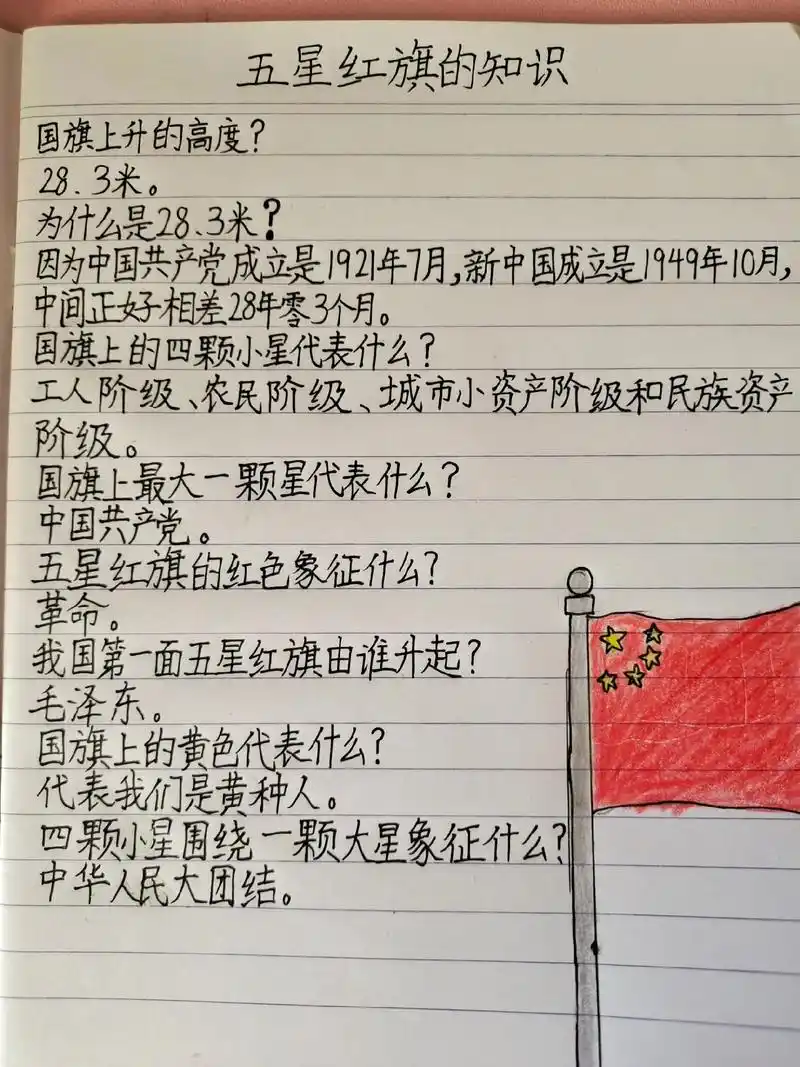 五星红旗的知识
国旗上升的高度?
28.3米。
为什么是28.3米?
因为中国共产党成立是1921年7月,新中国成立是1949年10月,
中间正好相差28年零3个月。
国旗上的四颗小星代表什么?
工人阶级、农民阶级、城市小资产阶级和民族资产
阶级。
国旗上最大一颗星代表什么?
中国共产党。
五星红旗的红色象征什么?
革命。
我国第一面五星红旗由谁升起?
毛泽东。
国旗上的黄色代表什么?
代表我们是黄种人。
四颗小星围绕一颗大星象征什么?
中华人民大团结。